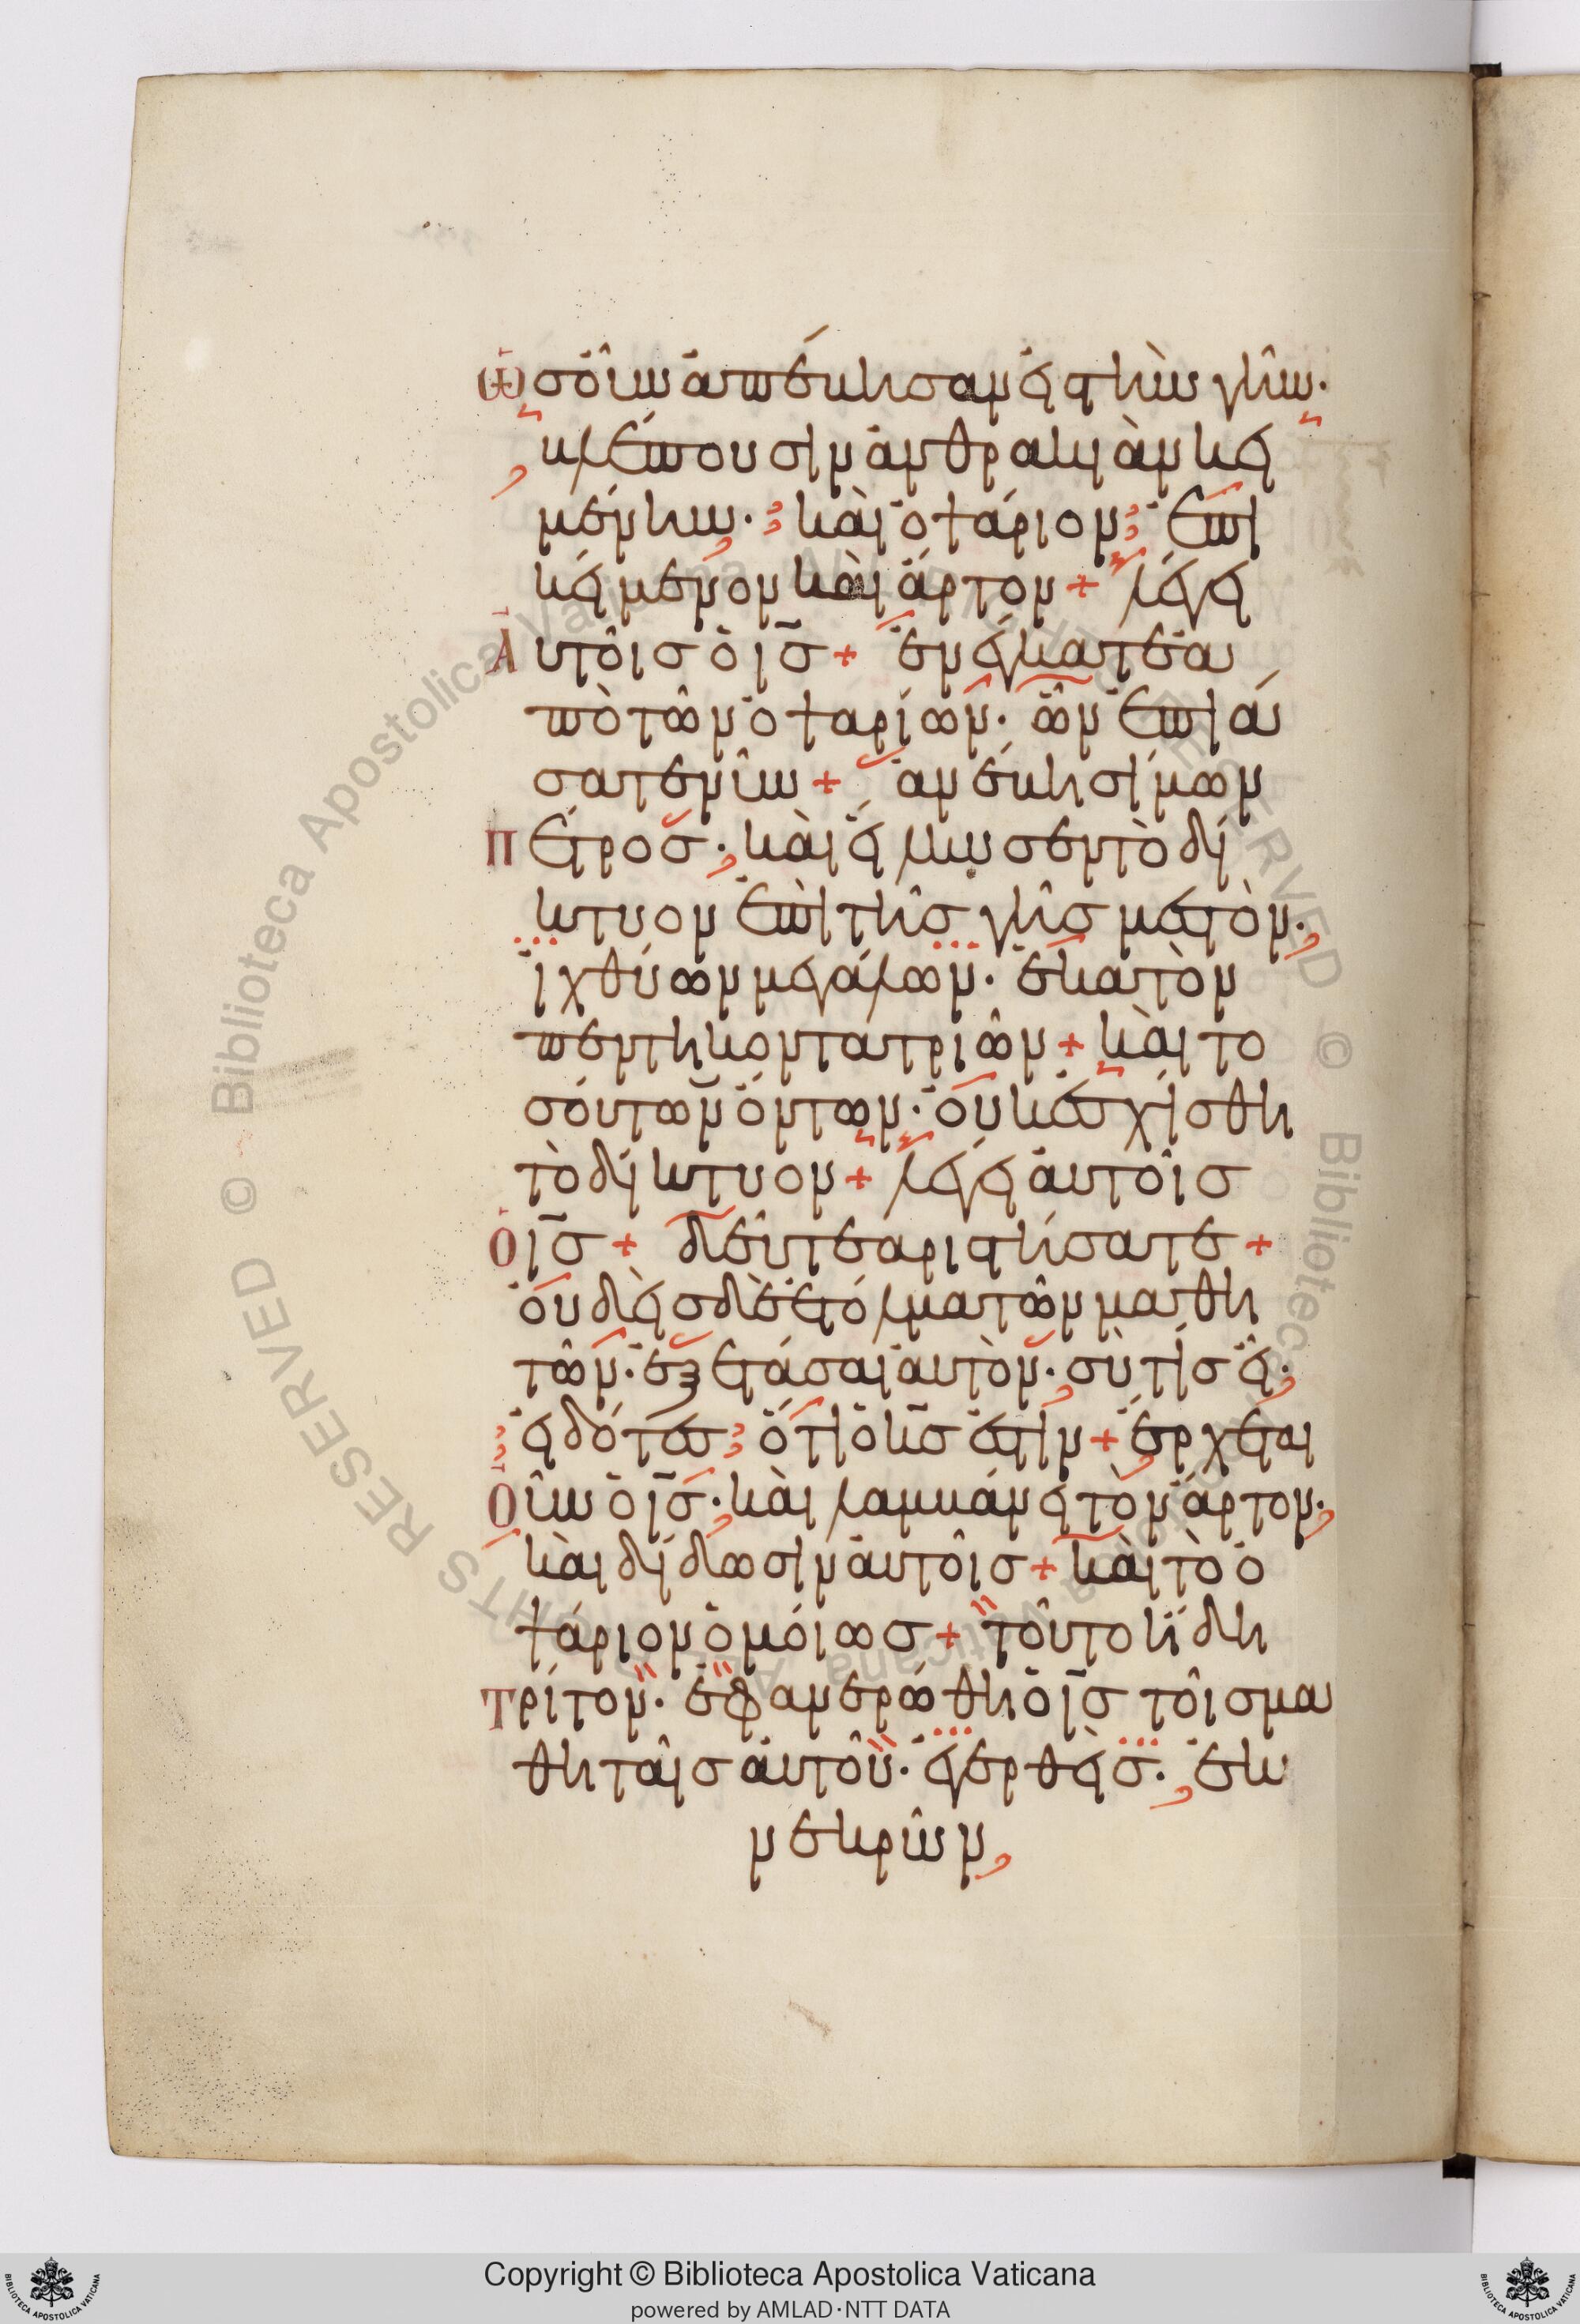 Ὡσ ὀῦν ἀπέβησαν ἐισ τὴν γῆν·
βλέπουσιν ἀνθρακιὰν κει
μένην· καὶ ὀψάριον ἐπι
κείμενον καὶ ἄρτον + λέγει
Αὐτοῖσ ὁ ι̅σ̅ + ἐνέγκατε ἀ
πὸ τῶν ὀψαρίων· ὧν ἐπιά
σατε νῦν + ἀνέβη σίμων
Πέτροσ· καὶ εἵλκυσεν τὸ δί
κτυον ἐπὶ τῆσ γῆσ μεστὸν·
ἰχθύων μεγάλων· ἑκατὸν
πεντηκοντατριῶν + καὶ το
σούτων ὄντων· οὐκ ἐσχίσθη
τὸ δίκτυον + λέγει αὐτοῖσ
Ὁ ι̅σ̅ + δεῦτε ἀριστήσατε +
οὐδεὶσ δὲ ἐτόλμα τῶν μαθη
τῶν· ἐξετάσαι αὐτὸν· σὺ τίσ εἶ·
εἰδότεσ ὅτι ὁ κ̅σ̅ ἐστίν + ἔρχεται
Οὖν ὁ ι̅σ̅· καὶ λαμβάνει τὸν ἄρτον·
καὶ δίδωσιν αὐτοῖσ + καὶ τὸ ὀ
ψάριον ὁμοίωσ + τοῦτο ἤδη
Τρίτον· ἐφανερώθη ὁ ι̅σ̅ τοῖσ μα
θηταῖσ αὐτοῦ· ἐγερθεὶσ· ἐκ
νεκρῶν
Copyright © Biblioteca Apostolica Vaticana
powered by AMLAD·NTT DATA